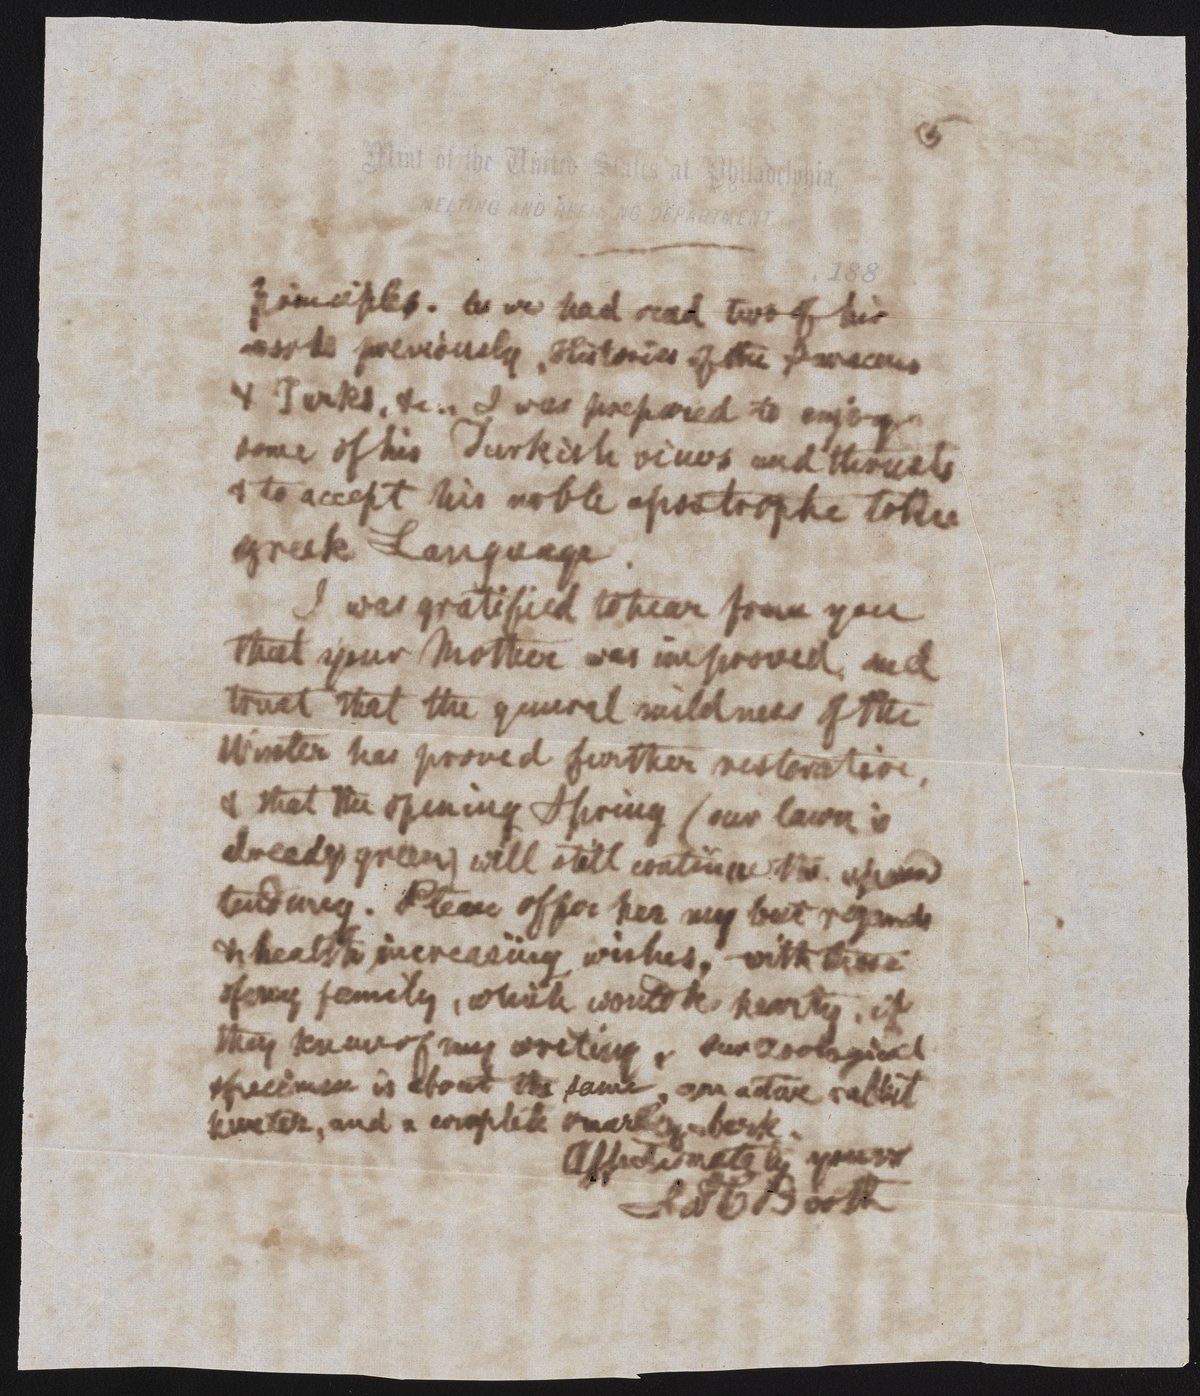 5
Mint of the United States at Philadelphia,
MELTING AND REFINING DEPARTMENT.
, 188
principles. As we had read two of his
works previously, Histories of the Saracens
& Turks, &c.. I was prepared to enjoy
some of his Turkish views and thrusts
& to accept his noble apostrophe to the
greek Language.
I was gratified to hear from you
that your Mother was improved, and
trust that the general mildness of the
Winter has proved further restorative,
& that the opening Spring (our lawn is
already green) will still continue the upward
tendency. Please offer her my best regards
& health increasing wishes, with those
of my family, which would be hearty, if
they knew of my writing. Our zoological
specimen is about the same, an active rabbit
hunter, and a complete
Affectionately yours
Booth